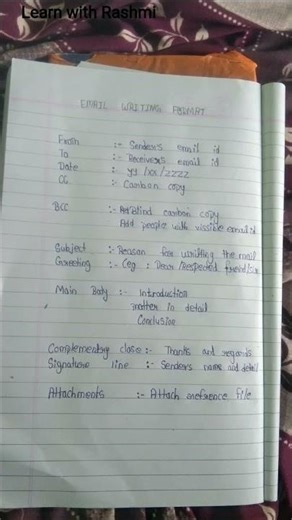 Learn with Rashmi
EMAIL WRITING FORMAT
From :- Senders email id
To :- Receivers email id
Date :- yy/xx/zzzz
CC :- Carbon copy
BCC :- Blind carbon copy
Add people with vissible email id
Subject :- Reason for writting the mail
Greeting :- (eg : Dear/Respected friend/sir
Main Body :- Introduction
matter in detail
Conclusion
Complementary close :- Thanks and regards
Signature line :- Senders name and detail
Attachments :- Attach file